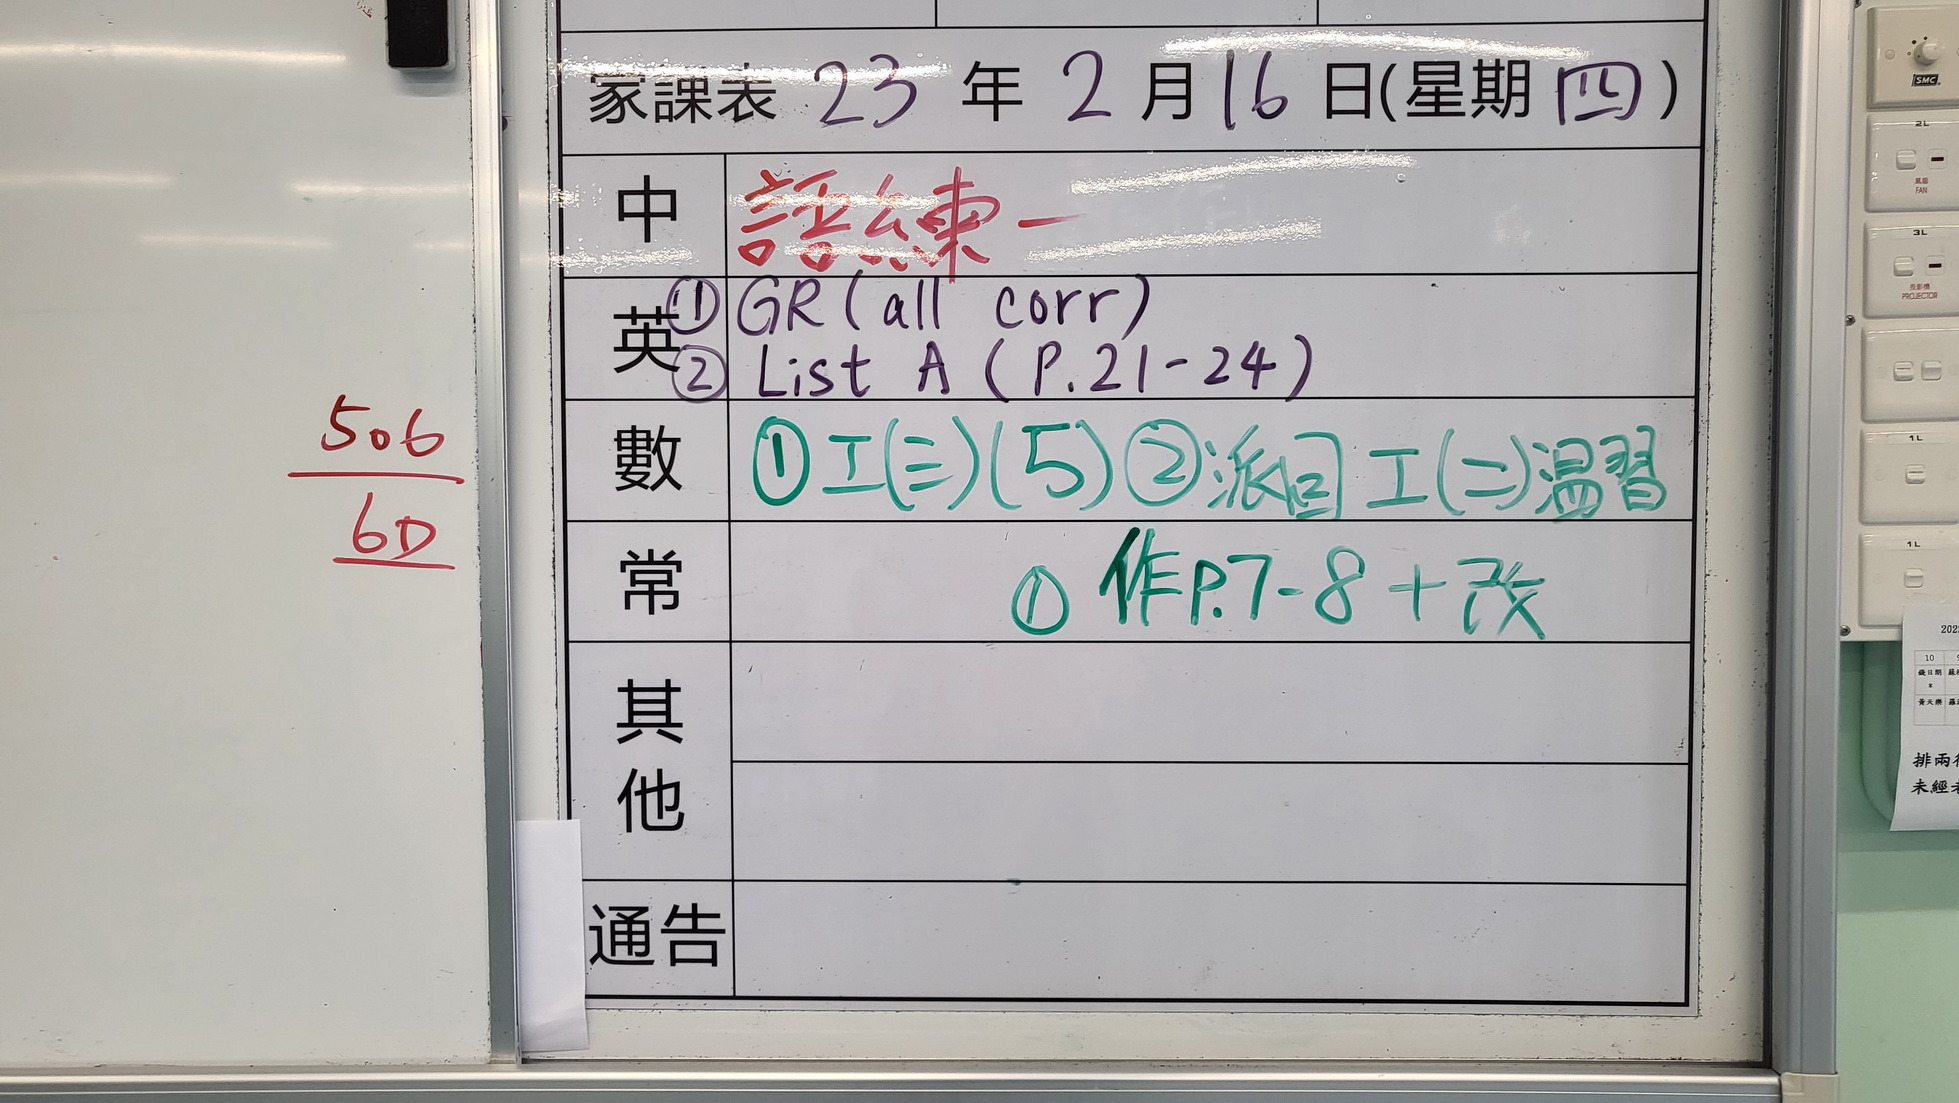 家課表 23 年 2 月 16 日(星期 四)
中 語練一
英 ① GR (all corr)
② List A (P.21-24)
數 ①工(三)(5)②派回 工(二)溫習
常 ① 作P.7-8+改
其他
通告
506
6D
SMC
2L
風扇
FAN
3L
投影機
PROJECTOR
1L
1L
202
10